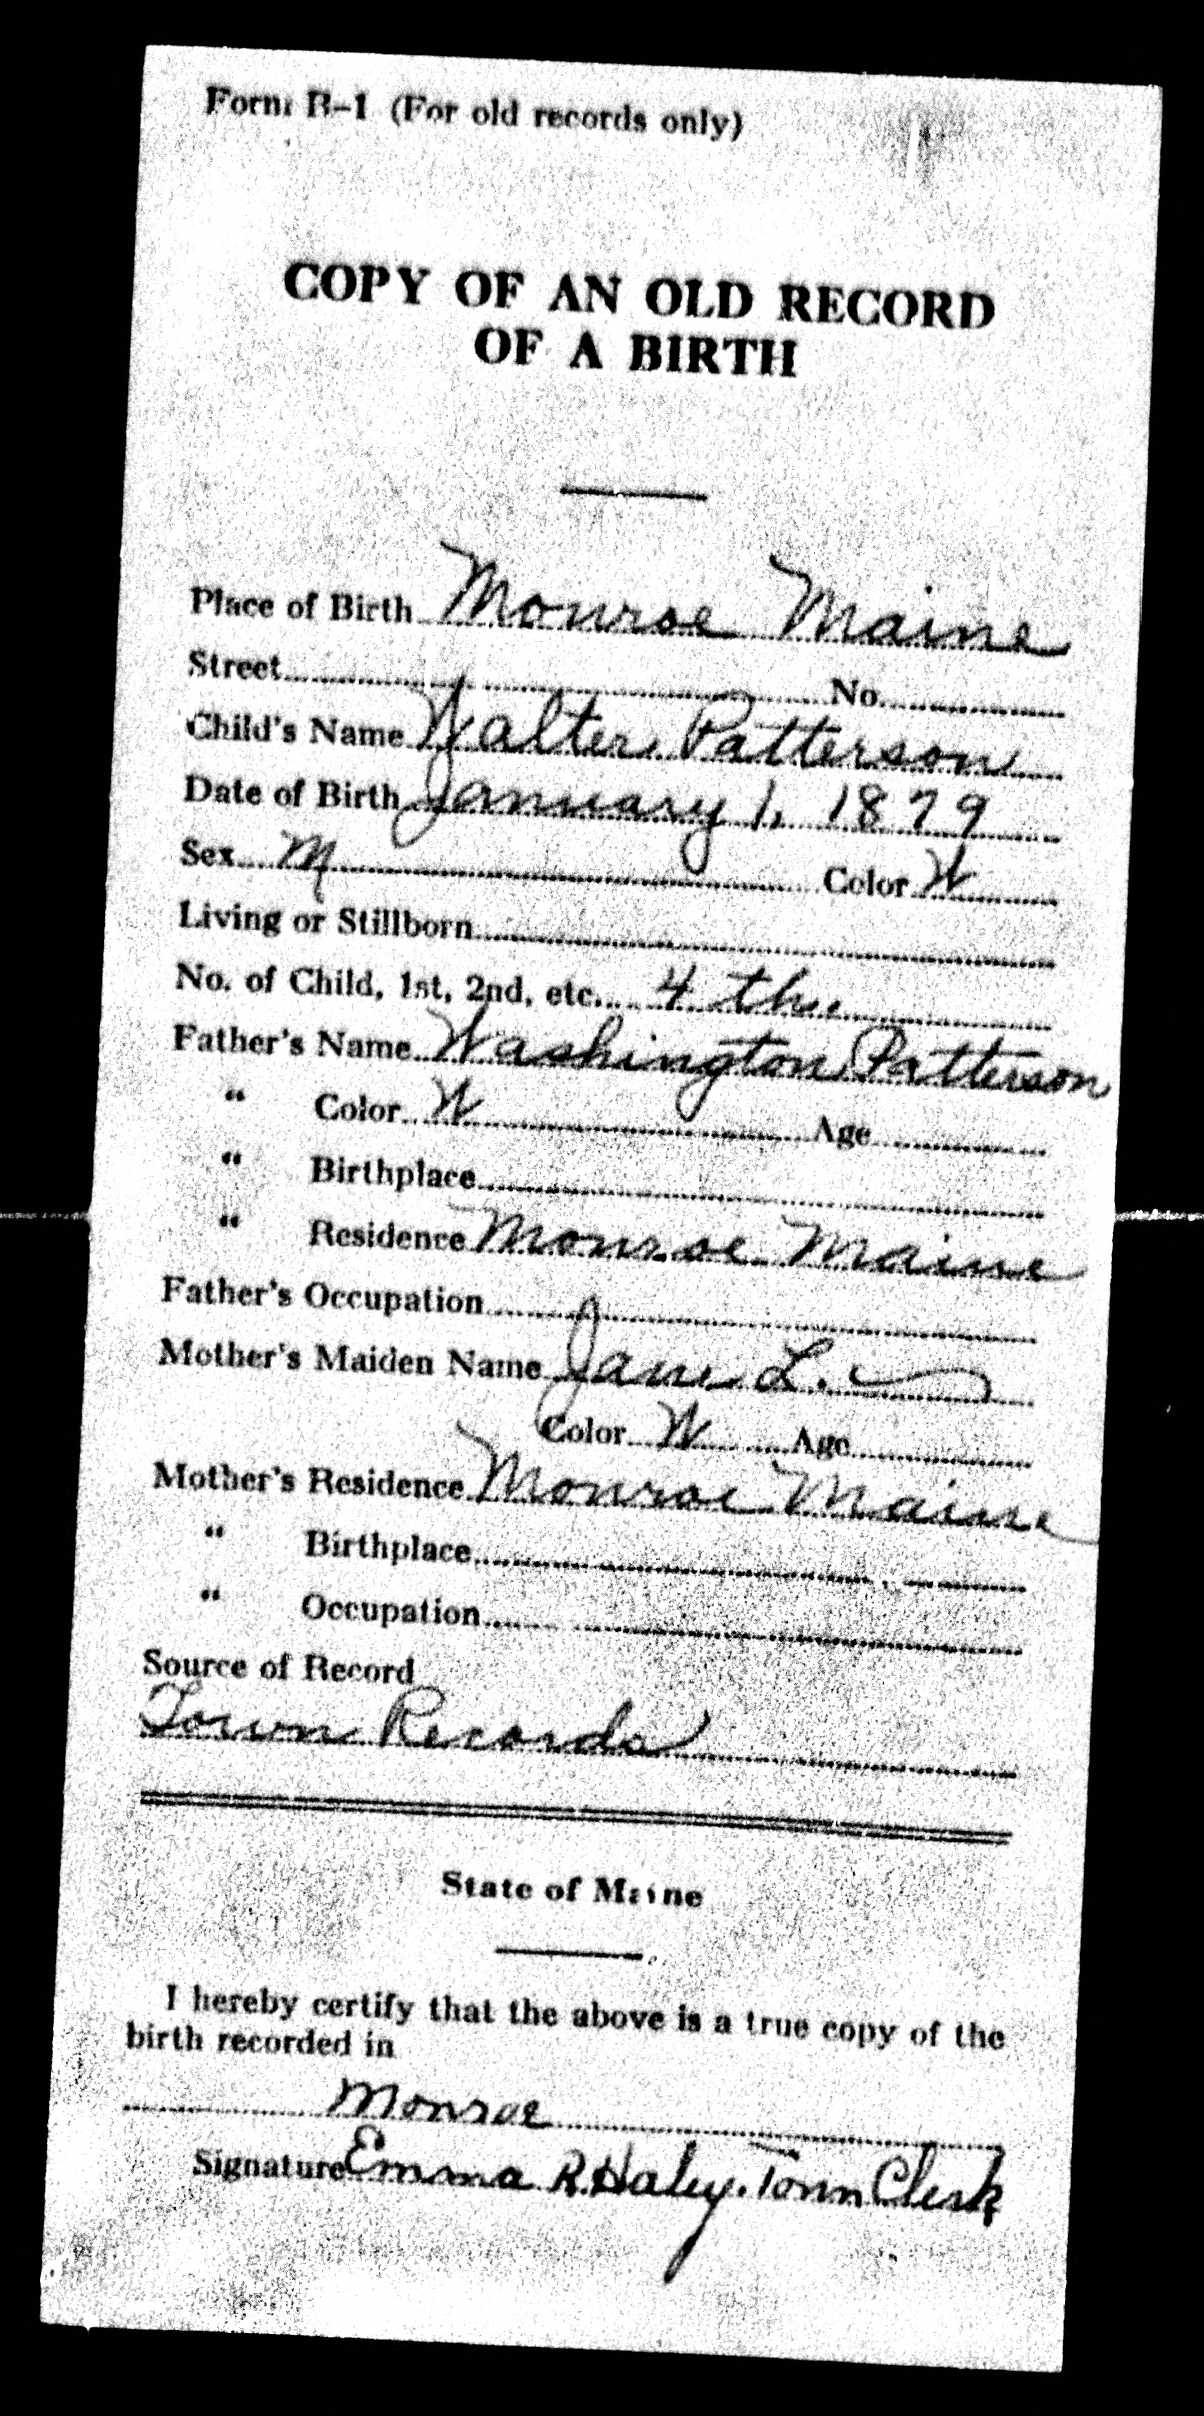 Form R-1 (For old records only)
COPY OF AN OLD RECORD
OF A BIRTH
Place of Birth Monroe Maine
Street No.
Child's Name Walter Patterson
Date of Birth January 1, 1879
Sex M Color W
Living or Stillborn
No. of Child, 1st, 2nd, etc. 4 th.
Father's Name Washington Patterson
" Color W Age
" Birthplace
" Residence Monroe Maine
Father's Occupation
Mother's Maiden Name Jane L.
Color W Age
Mother's Residence Monroe Maine
" Birthplace
" Occupation
Source of Record
Town Records
State of Maine
I hereby certify that the above is a true copy of the
birth recorded in
Monroe
Signature Emma R. Haley. Town Clerk